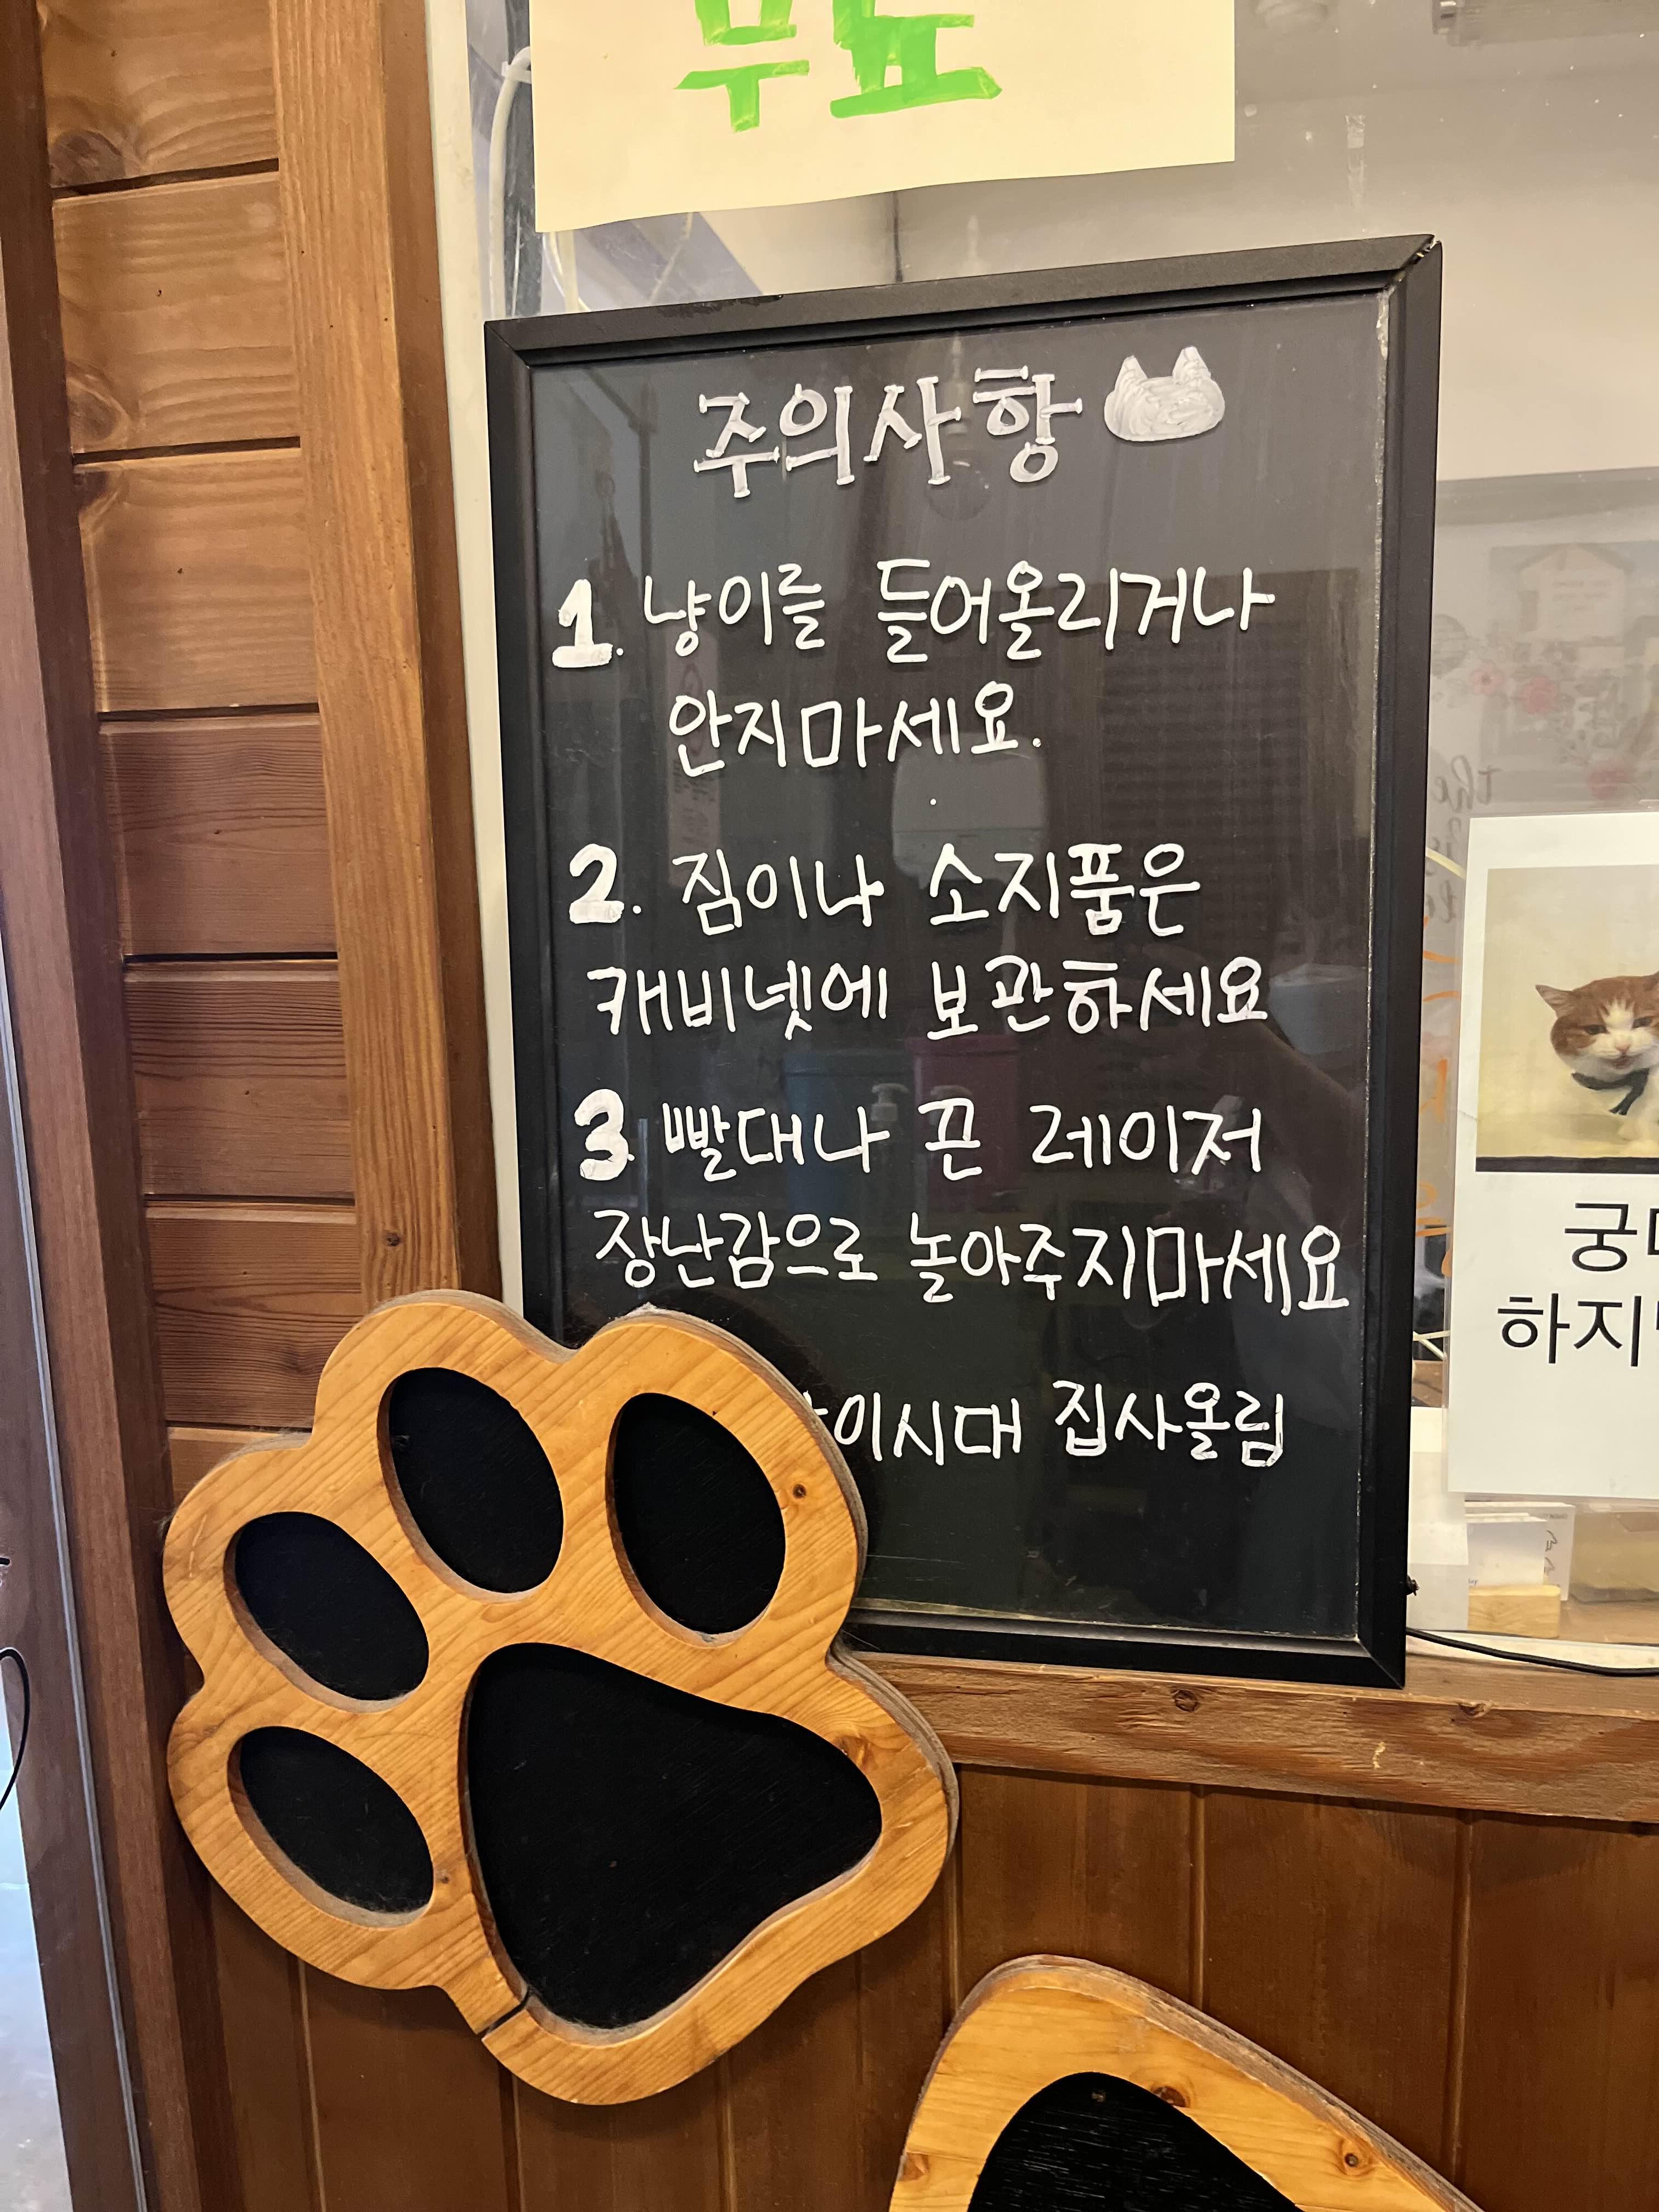 무료
주의사항
1. 냥이를 들어올리거나
안지마세요.
2. 짐이나 소지품은
캐비넷에 보관하세요
3. 빨대나 끈 레이저
장난감으로 놀아주지마세요
이시대 집사올림
궁
하지